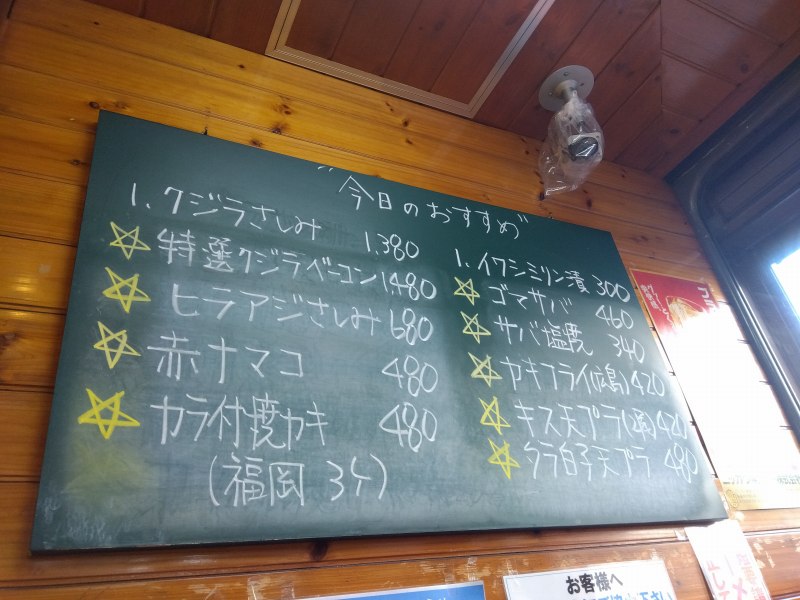 "今日のおすすめ"
1. クジラさしみ 1,380
☆特選クジラベーコン 1,480
☆ヒラアジさしみ 680
☆赤ナマコ 480
☆カラ付焼カキ 480
(福岡 3ケ)
1. イワシミリン漬 300
☆ゴマサバ 460
☆サバ塩焼 340
☆カキフライ(広島) 420
☆キス天プラ 420
☆タラ白子天プラ 480
お客様へ